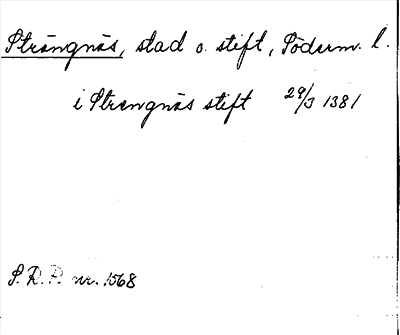 Strängnäs, stad o. stift, Söderm. l.
i Strengnäs stift 29/3 1381
S.R.P. nr. 1568